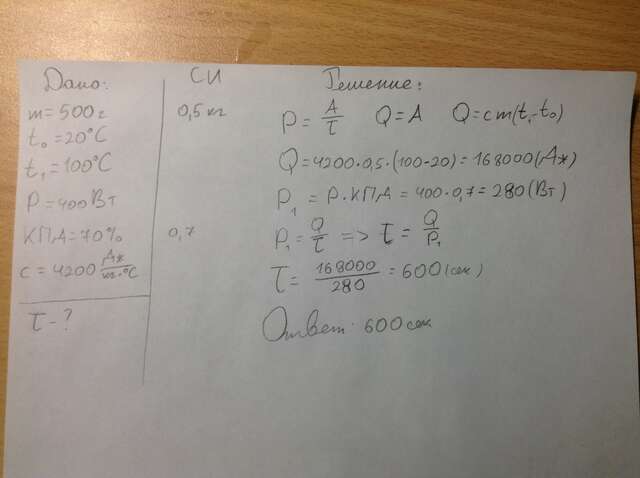 Дано:
m = 500 г
t₀ = 20°C
t₁ = 100°C
P = 400 Вт
КПД = 70%
c = 4200 Дж/кг·°C
τ - ?
СИ
0,5 кг
0,7
Решение:
P = A/τ Q = A Q = cm(t₁-t₀)
Q = 4200·0,5·(100-20) = 168000 (Дж)
P₁ = P·КПД = 400·0,7 = 280 (Вт)
P₁ = Q/τ => τ = Q/P₁
τ = 168000/280 = 600 (сек)
Ответ: 600 сек